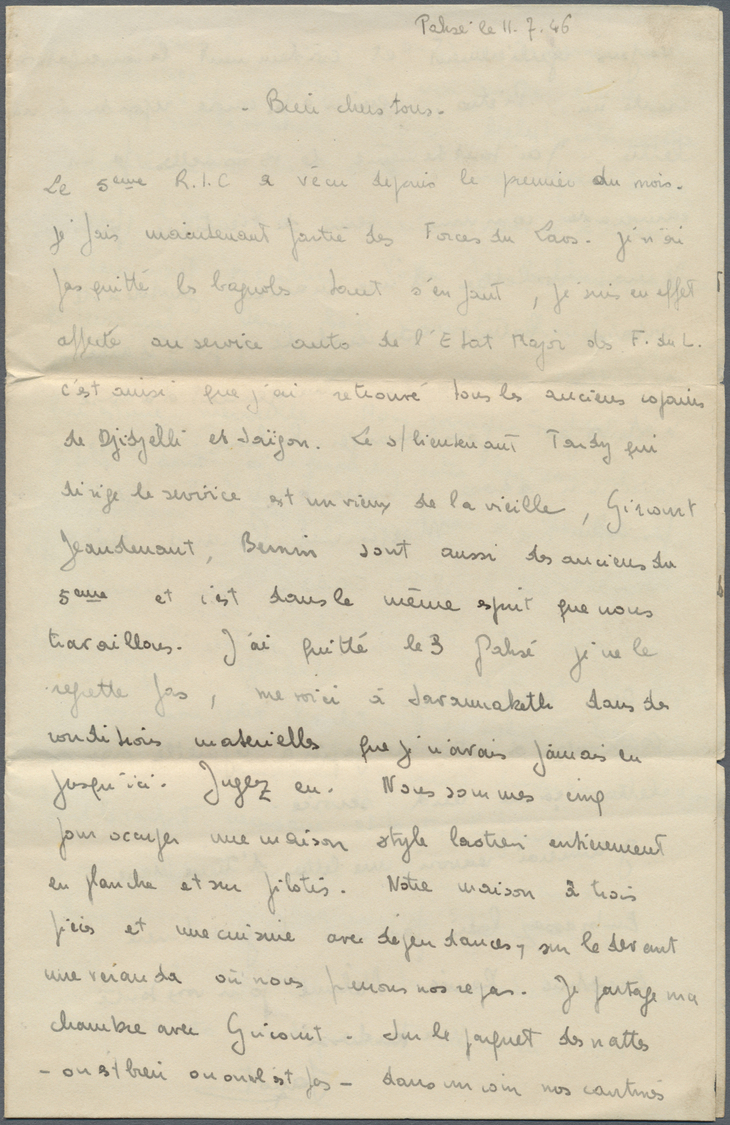 Paksé le 11.7.46
- Bien chers tous.
Le 5eme R.I.C a vécu depuis le premier du mois.
je fais maintenant partie des Forces du Laos. je n'ai
pas quitté les bagnols tant s'en faut, je suis en effet
affecté au service auto de l'Etat Major des F. du L.
c'est ainsi que j'ai retrouvé tous les anciens copains
de Djidjelli et Saïgon. Le s/lieutenant Tardy qui
dirige le service est un vieux de la vieille, Gircourt
Jeandenant, Bernin sont aussi des anciens du
5eme et c'est dans le même esprit que nous
travaillons. J'ai quitté le 3 Paksé je ne le
regrette pas, me voici à Savannaketh dans des
conditions materielles que je n'avais jamais eu
jusqu'ici. Jugez en. Nous sommes cinq
pour occuper une maison style laotien entièrement
en planche et sur pilotis. Notre maison a trois
pièces et une cuisine avec dépendances, sur le devant
une veranda où nous prenons nos repas. Je partage ma
chambre avec Gircourt. Sur le parquet des nattes
- on est bien ou on l est pas - dans un coin nos cantines